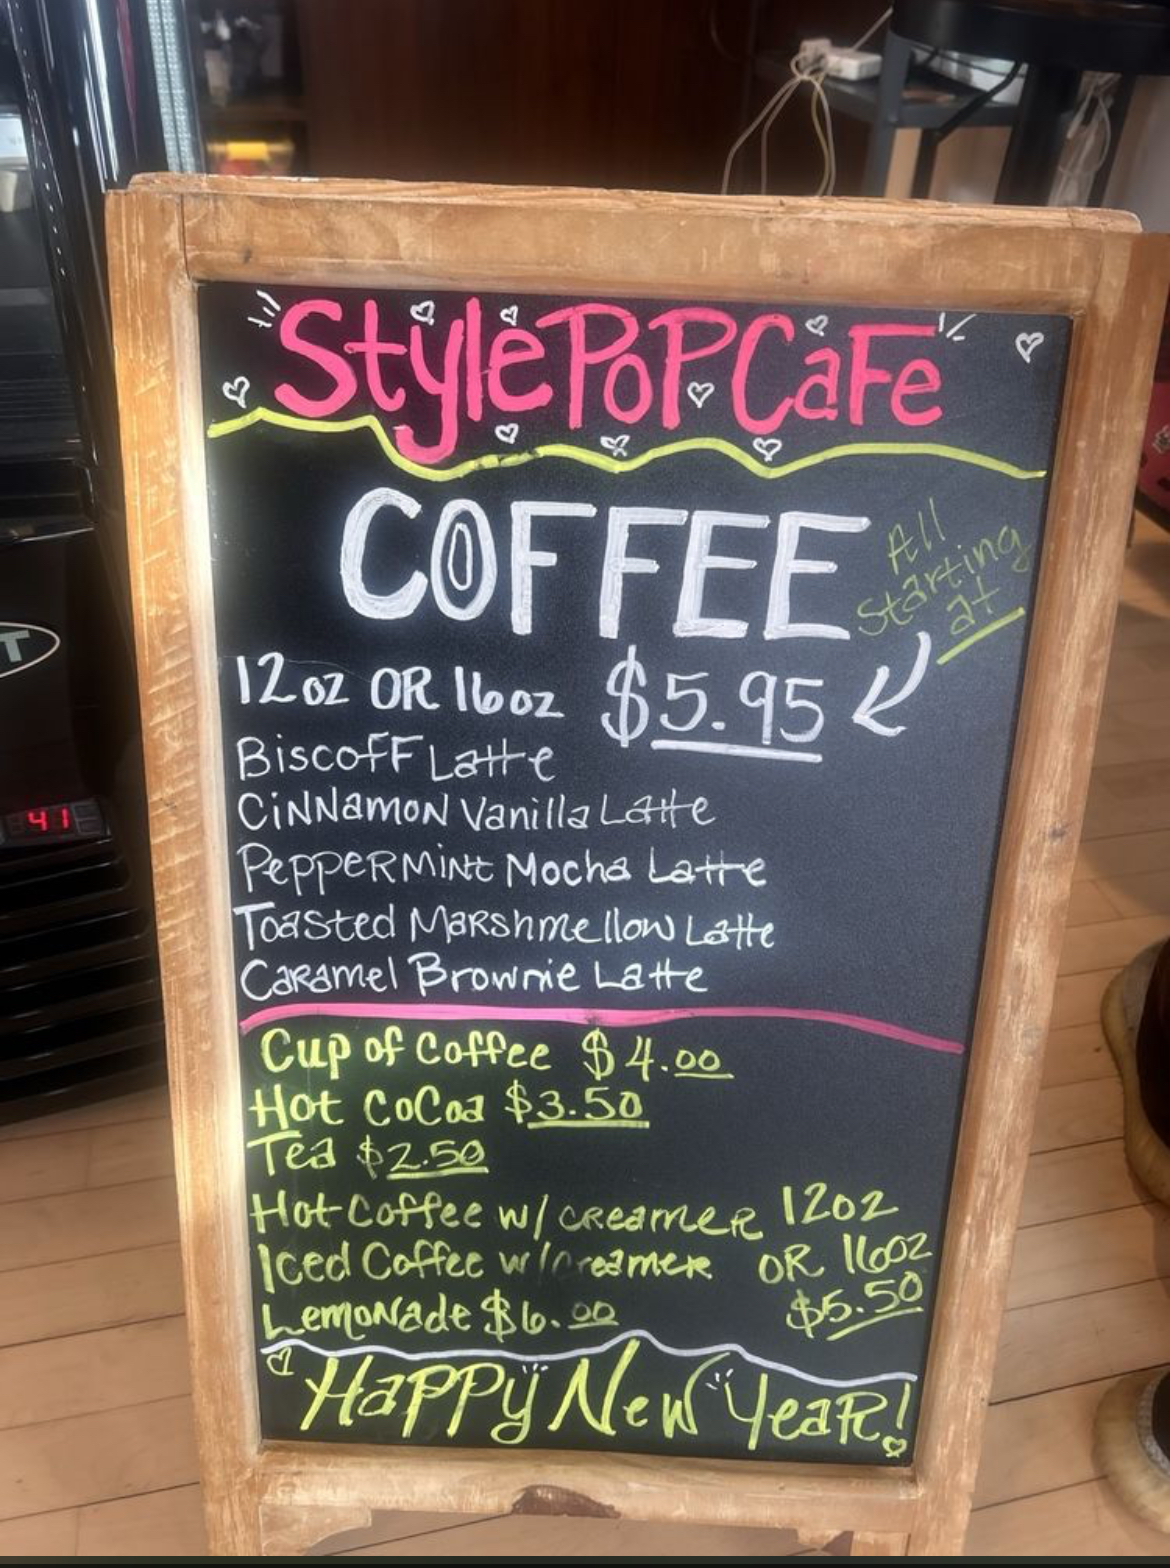 Style PoP CaFe
COFFEE
All
starting
at
12oz OR 16oz $5.95
BiscoFF Latte
CiNNamoN Vanilla Latte
PePPeRMiNt Mocha Latte
Toasted MaRshmellow Latte
CaRamel Brownie Latte
Cup of Coffee $4.00
Hot CoCoa $3.50
Tea $2.50
Hot Coffee w/ CReameR 12oz
Iced Coffee w/creameR OR 16oz
$5.50
LemoNade $6.00
HaPPy New YeaR!
T
41